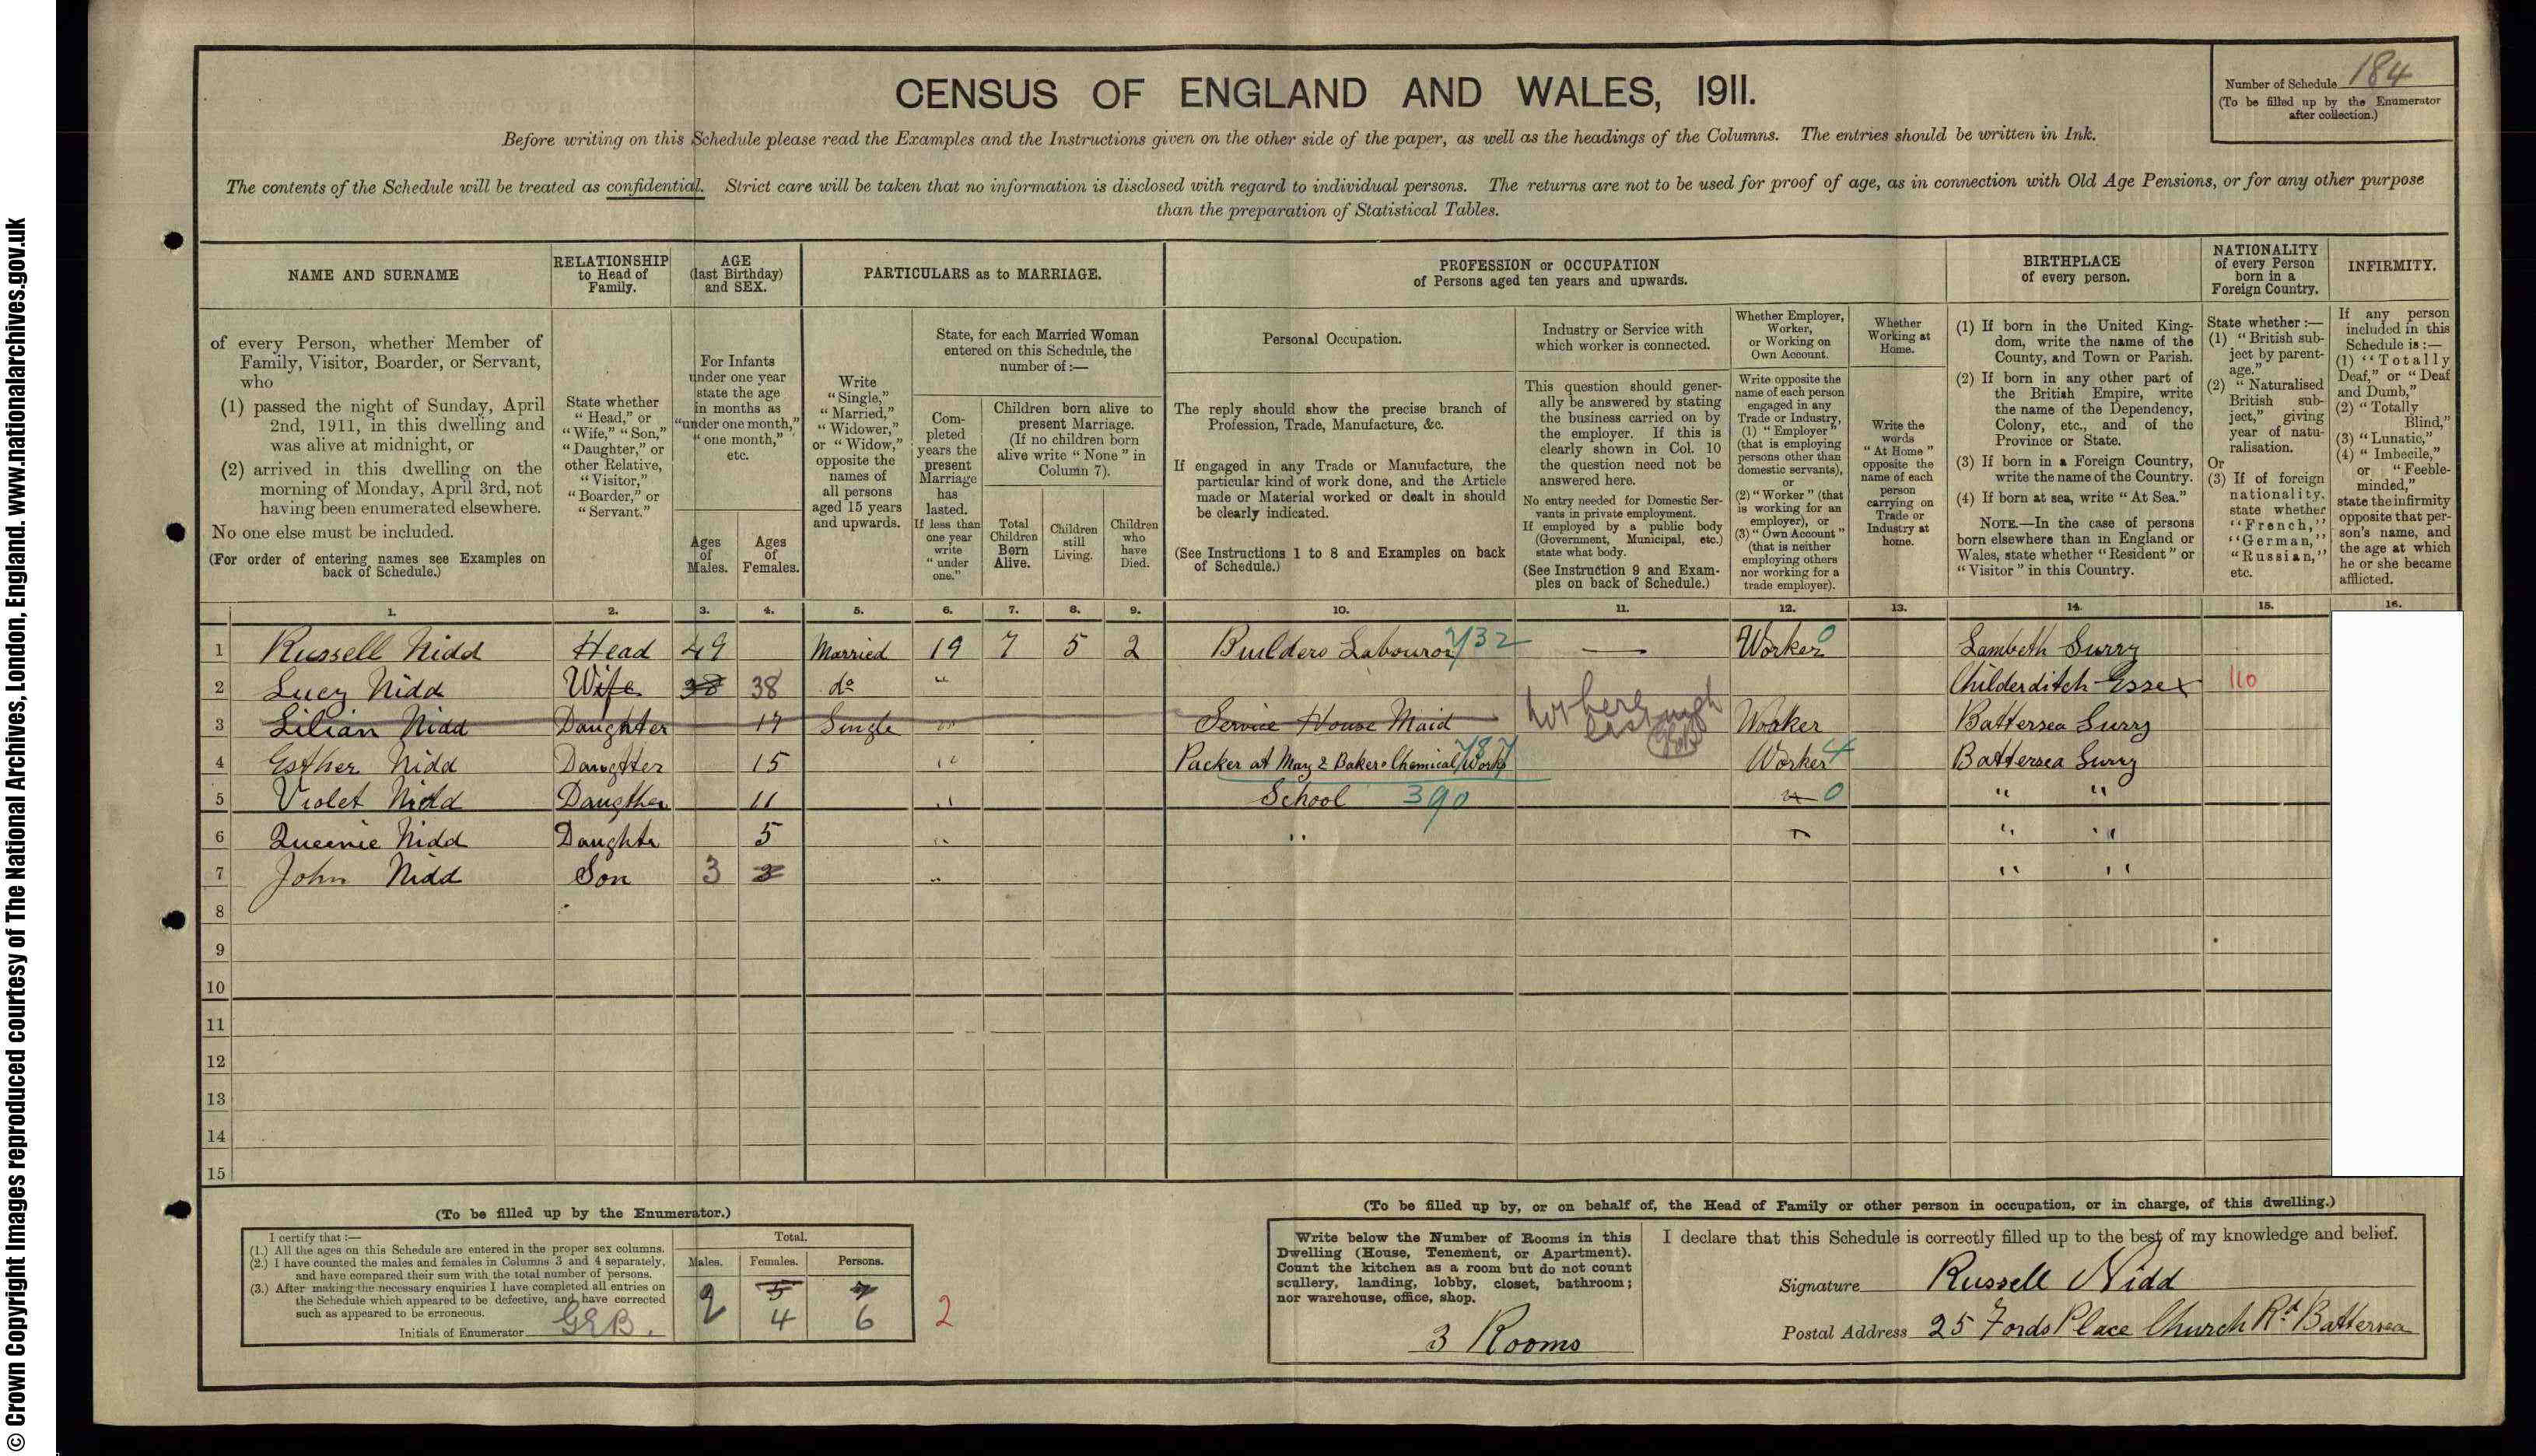 © Crown Copyright Images reproduced courtesy of The National Archives, London, England. www.nationalarchives.gov.uk
CENSUS OF ENGLAND AND WALES, 1911.
Number of Schedule 184
(To be filled up by the Enumerator
after collection.)
Before writing on this Schedule please read the Examples and the Instructions given on the other side of the paper, as well as the headings of the Columns. The entries should be written in Ink.
The contents of the Schedule will be treated as confidential. Strict care will be taken that no information is disclosed with regard to individual persons. The returns are not to be used for proof of age, as in connection with Old Age Pensions, or for any other purpose
than the preparation of Statistical Tables.
NAME AND SURNAME
of every Person, whether Member of
Family, Visitor, Boarder, or Servant,
who
(1) passed the night of Sunday, April
2nd, 1911, in this dwelling and
was alive at midnight, or
(2) arrived in this dwelling on the
morning of Monday, April 3rd, not
having been enumerated elsewhere.
No one else must be included.
(For order of entering names see Examples on
back of Schedule.)
RELATIONSHIP
to Head of
Family.
State whether
"Head," or
"Wife," "Son,"
"Daughter," or
other Relative,
"Visitor,"
"Boarder," or
"Servant."
AGE
(last Birthday)
and SEX.
For Infants
under one year
state the age
in months as
"under one month,"
"one month,"
etc.
Ages
of
Males.
Ages
of
Females.
PARTICULARS as to MARRIAGE.
Write
"Single,"
"Married,"
"Widower,"
or "Widow,"
opposite the
names of
all persons
aged 15 years
and upwards.
State, for each Married Woman
entered on this Schedule, the
number of:—
Com-
pleted
years the
present
Marriage
has
lasted.
If less than
one year
write
"under
one."
Children born alive to
present Marriage.
(If no children born
alive write "None" in
Column 7).
Total
Children
Born
Alive.
Children
still
Living.
Children
who
have
Died.
PROFESSION or OCCUPATION
of Persons aged ten years and upwards.
Personal Occupation.
The reply should show the precise branch of
Profession, Trade, Manufacture, &c.
If engaged in any Trade or Manufacture, the
particular kind of work done, and the Article
made or Material worked or dealt in should
be clearly indicated.
(See Instructions 1 to 8 and Examples on back
of Schedule.)
Industry or Service with
which worker is connected.
This question should gener-
ally be answered by stating
the business carried on by
the employer. If this is
clearly shown in Col. 10
the question need not be
answered here.
No entry needed for Domestic Ser-
vants in private employment.
If employed by a public body
(Government, Municipal, etc.)
state what body.
(See Instruction 9 and Exam-
ples on back of Schedule.)
Whether Employer,
Worker,
or Working on
Own Account.
Write opposite the
name of each person
engaged in any
Trade or Industry,
(1) "Employer"
(that is employing
persons other than
domestic servants),
or
(2) "Worker" (that
is working for an
employer), or
(3) "Own Account"
(that is neither
employing others
nor working for a
trade employer).
Whether
Working at
Home.
Write the
words
"At Home"
opposite the
name of each
person
carrying on
Trade or
Industry at
home.
BIRTHPLACE
of every person.
(1) If born in the United King-
dom, write the name of the
County, and Town or Parish.
(2) If born in any other part of
the British Empire, write
the name of the Dependency,
Colony, etc., and of the
Province or State.
(3) If born in a Foreign Country,
write the name of the Country.
(4) If born at sea, write "At Sea."
NOTE.—In the case of persons
born elsewhere than in England or
Wales, state whether "Resident" or
"Visitor" in this Country.
NATIONALITY
of every Person
born in a
Foreign Country.
State whether:—
(1) "British sub-
ject by parent-
age."
(2) "Naturalised
British sub-
ject," giving
year of natu-
ralisation.
Or
(3) If of foreign
nationality,
state whether
"French,"
"German,"
"Russian,"
etc.
INFIRMITY.
If any person
included in this
Schedule is:—
(1) "Totally
Deaf," or "Deaf
and Dumb,"
(2) "Totally
Blind,"
(3) "Lunatic,"
(4) "Imbecile,"
or "Feeble-
minded,"
state the infirmity
opposite that per-
son's name, and
the age at which
he or she became
afflicted.
1. 2. 3. 4. 5. 6. 7. 8. 9. 10. 11. 12. 13. 14. 15. 16.
1 Russell Nidd Head 49 Married 19 7 5 2 Builders Labouror 732 — Worker 0 Lambeth Surry
2 Lucy Nidd Wife 38 38 do " Childerditch Essex 110
3 Lilian Nidd Daughter 17 Single " Service House Maid not here last night Worker Battersea Surry
4 Esther Nidd Daugtter 15 " Packer at May & Bakers Chemical Works 787 Worker 4 Battersea Surry
5 Violet Nidd Daugther 11 " School 390 0 " "
6 Queenie Nidd Daughter 5 " " " "
7 John Nidd Son 3 3 " " "
8
9
10
11
12
13
14
15
(To be filled up by the Enumerator.)
I certify that:—
(1.) All the ages on this Schedule are entered in the proper sex columns.
(2.) I have counted the males and females in Columns 3 and 4 separately,
and have compared their sum with the total number of persons.
(3.) After making the necessary enquiries I have completed all entries on
the Schedule which appeared to be defective, and have corrected
such as appeared to be erroneous.
Initials of Enumerator GEB.
Total.
Males. Females. Persons.
5 7
2 4 6 2
(To be filled up by, or on behalf of, the Head of Family or other person in occupation, or in charge, of this dwelling.)
Write below the Number of Rooms in this
Dwelling (House, Tenement, or Apartment).
Count the kitchen as a room but do not count
scullery, landing, lobby, closet, bathroom;
nor warehouse, office, shop.
3 Rooms
I declare that this Schedule is correctly filled up to the best of my knowledge and belief.
Signature Russell Nidd
Postal Address 25 Fords Place Church Rd Battersea